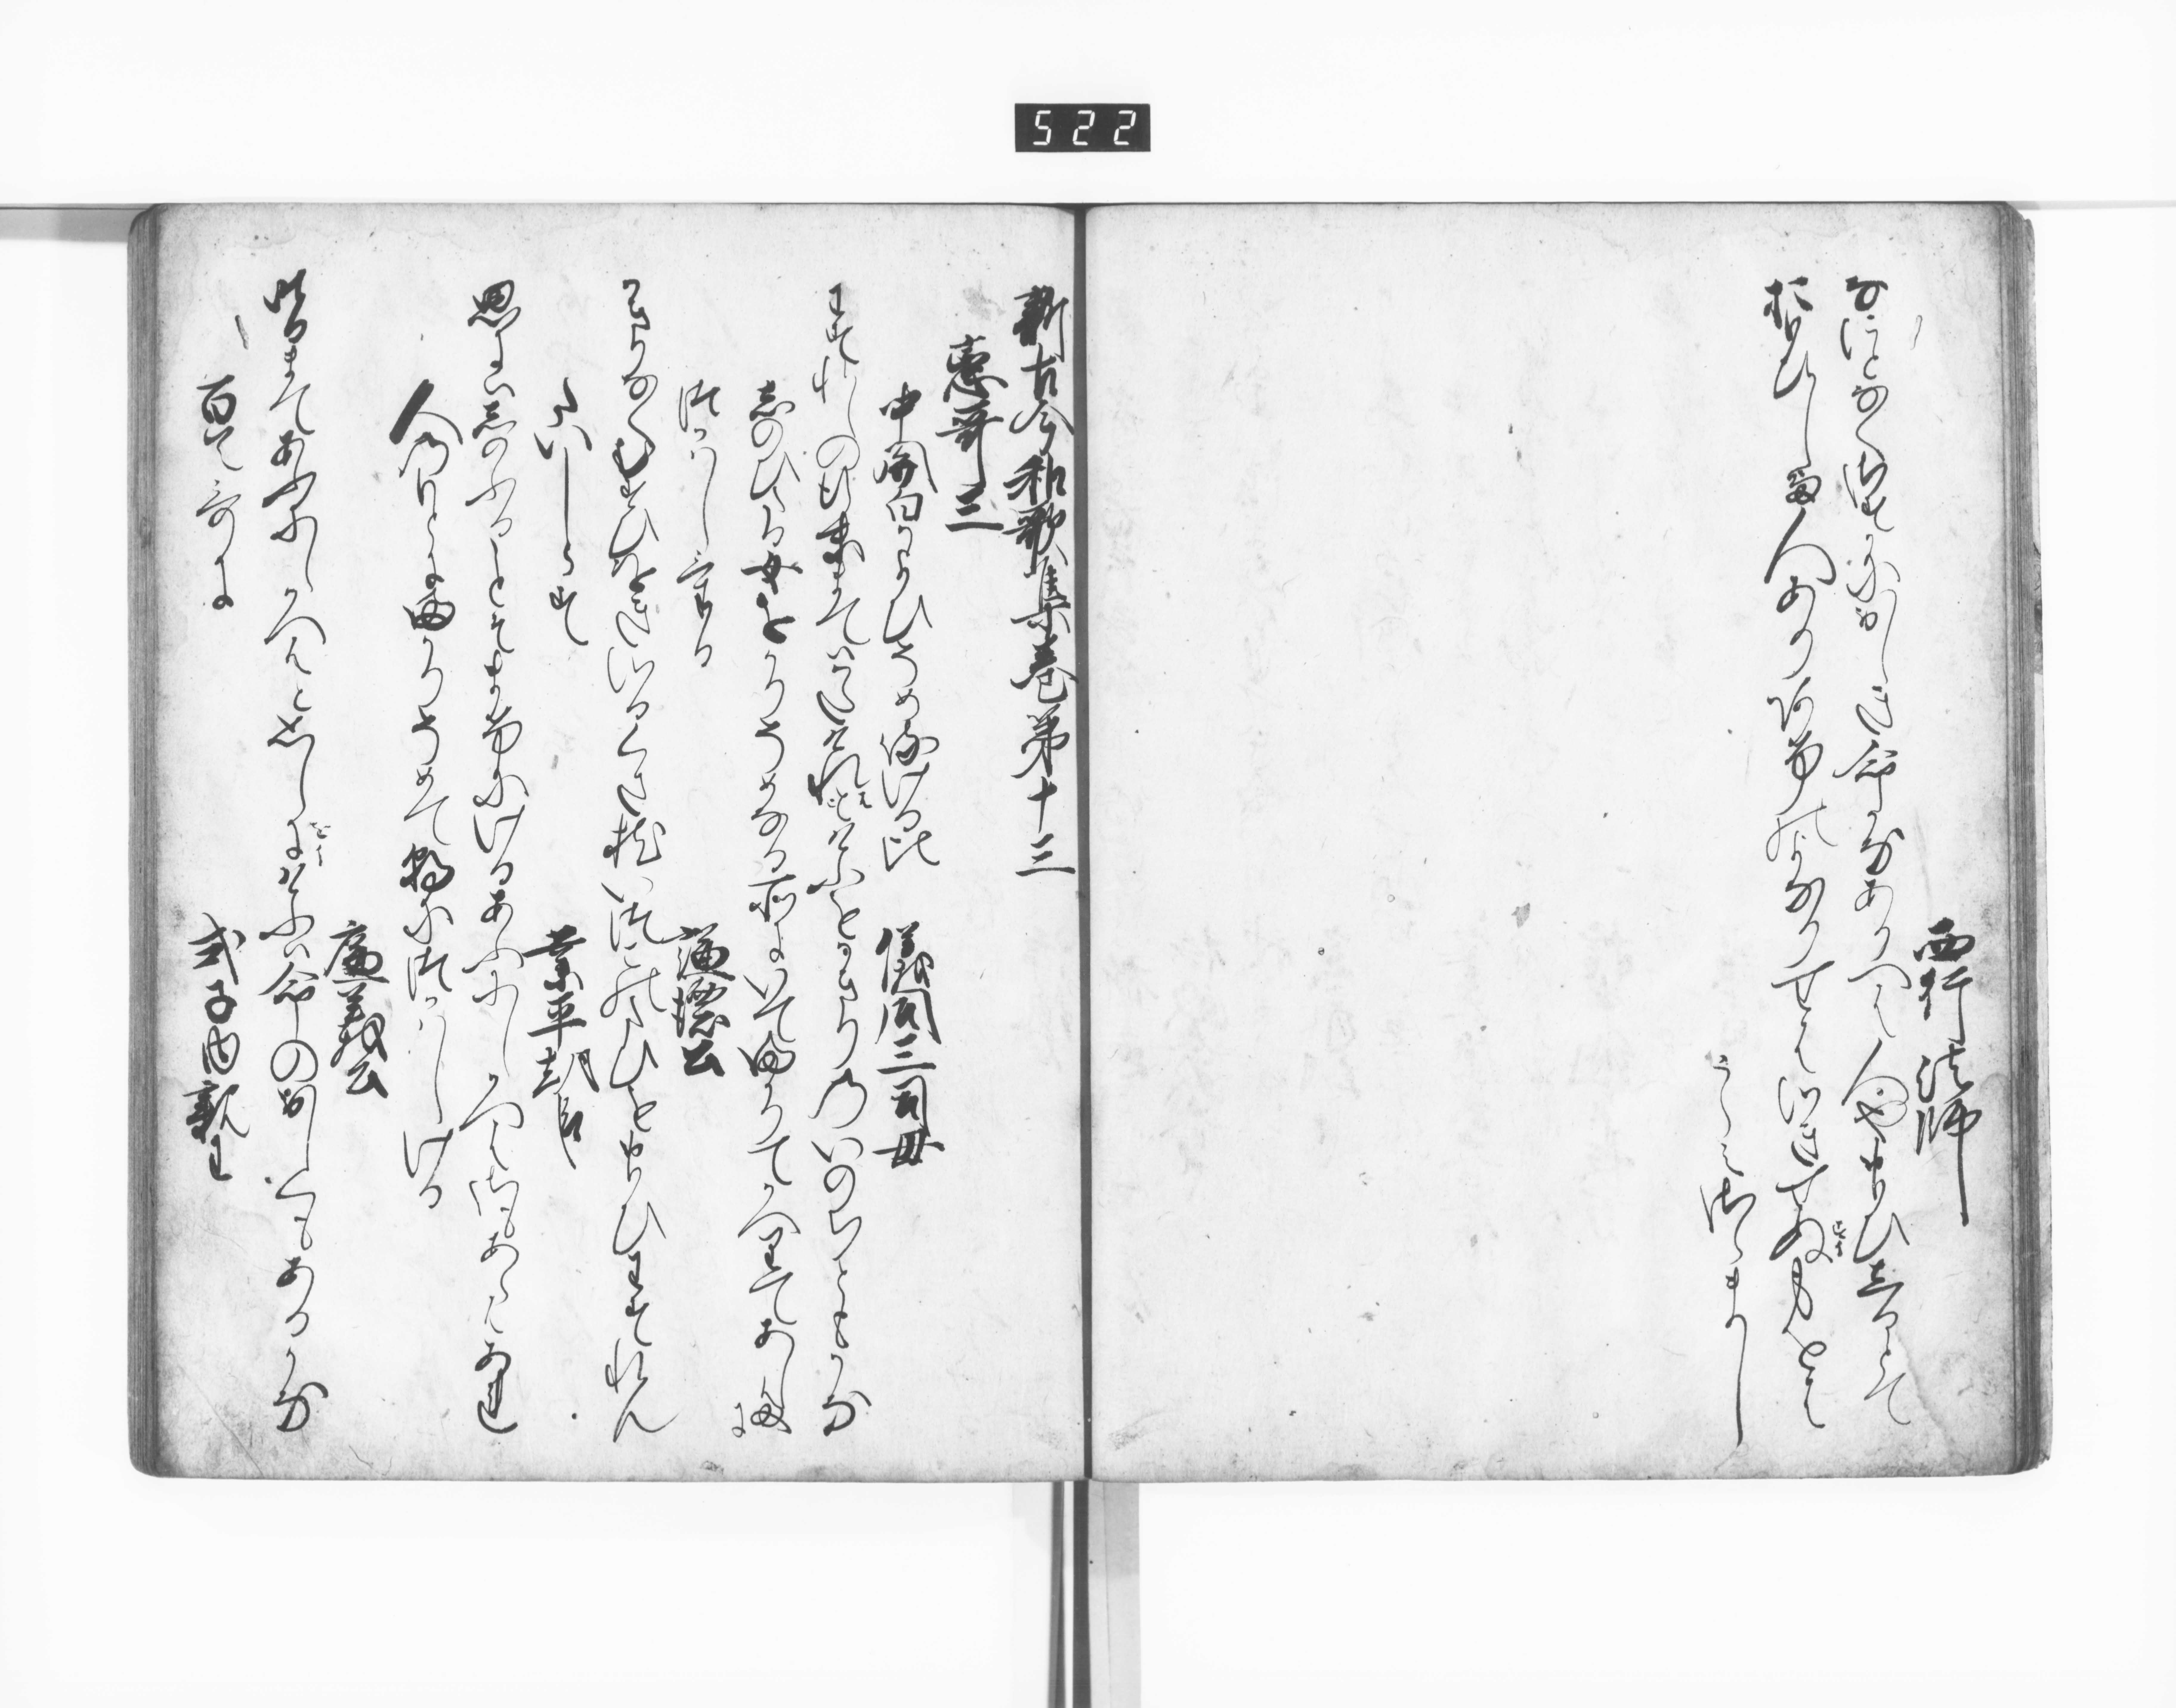 522
西行法師
なにとなくさすかにおしき命かなありへは人や思ひしるとて
おもひしる人ありあけのよなりせはつきせす身をは
うらみさらまし
新古今和歌集巻第十三
恋哥三
中関白かよひそめ侍ける比
儀同三司母
わすれしの行末まてはかたけれはけふをかきりのいのちともかな
しのひたる女をかりそめなる所にゐてまかりてかへりてあしたに
つかはしける
謙徳公
かきりなくむすひをきつる草枕いつこのたひをおもひわすれん
たいしらす
業平朝臣
思にはしのふることそまけにけるあふにしかへはさもあらはあれ
人のもとにまかりそめて朝につかはしける
廉義公
昨日まてあふにしかへはとおもひしをけふは命のおしくもあるかな
百首哥に
式子内親王